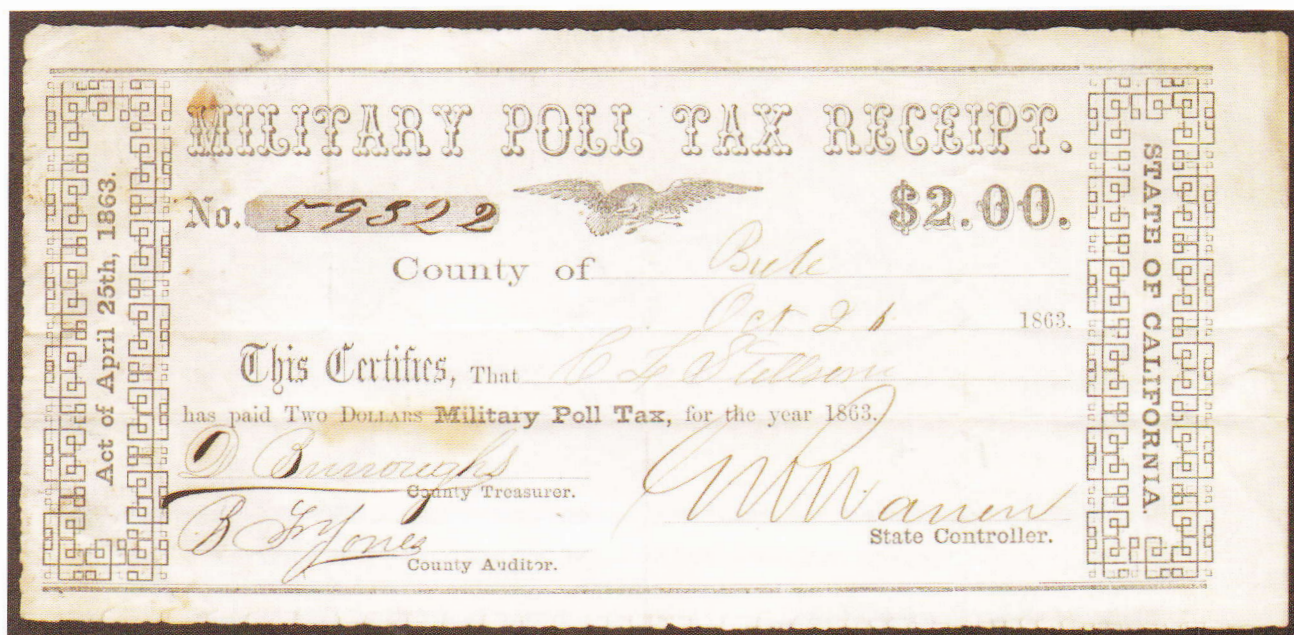 MILITARY POLL TAX RECEIPT.
No. 59322
$2.00.
County of Butte
Oct 21 1863.
This Certifies, That C L Stillson
has paid Two Dollars Military Poll Tax, for the year 1863.
D Burroughs
County Treasurer.
B F Jones
County Auditor.
G W Warren
State Controller.
Act of April 25th, 1863.
STATE OF CALIFORNIA.